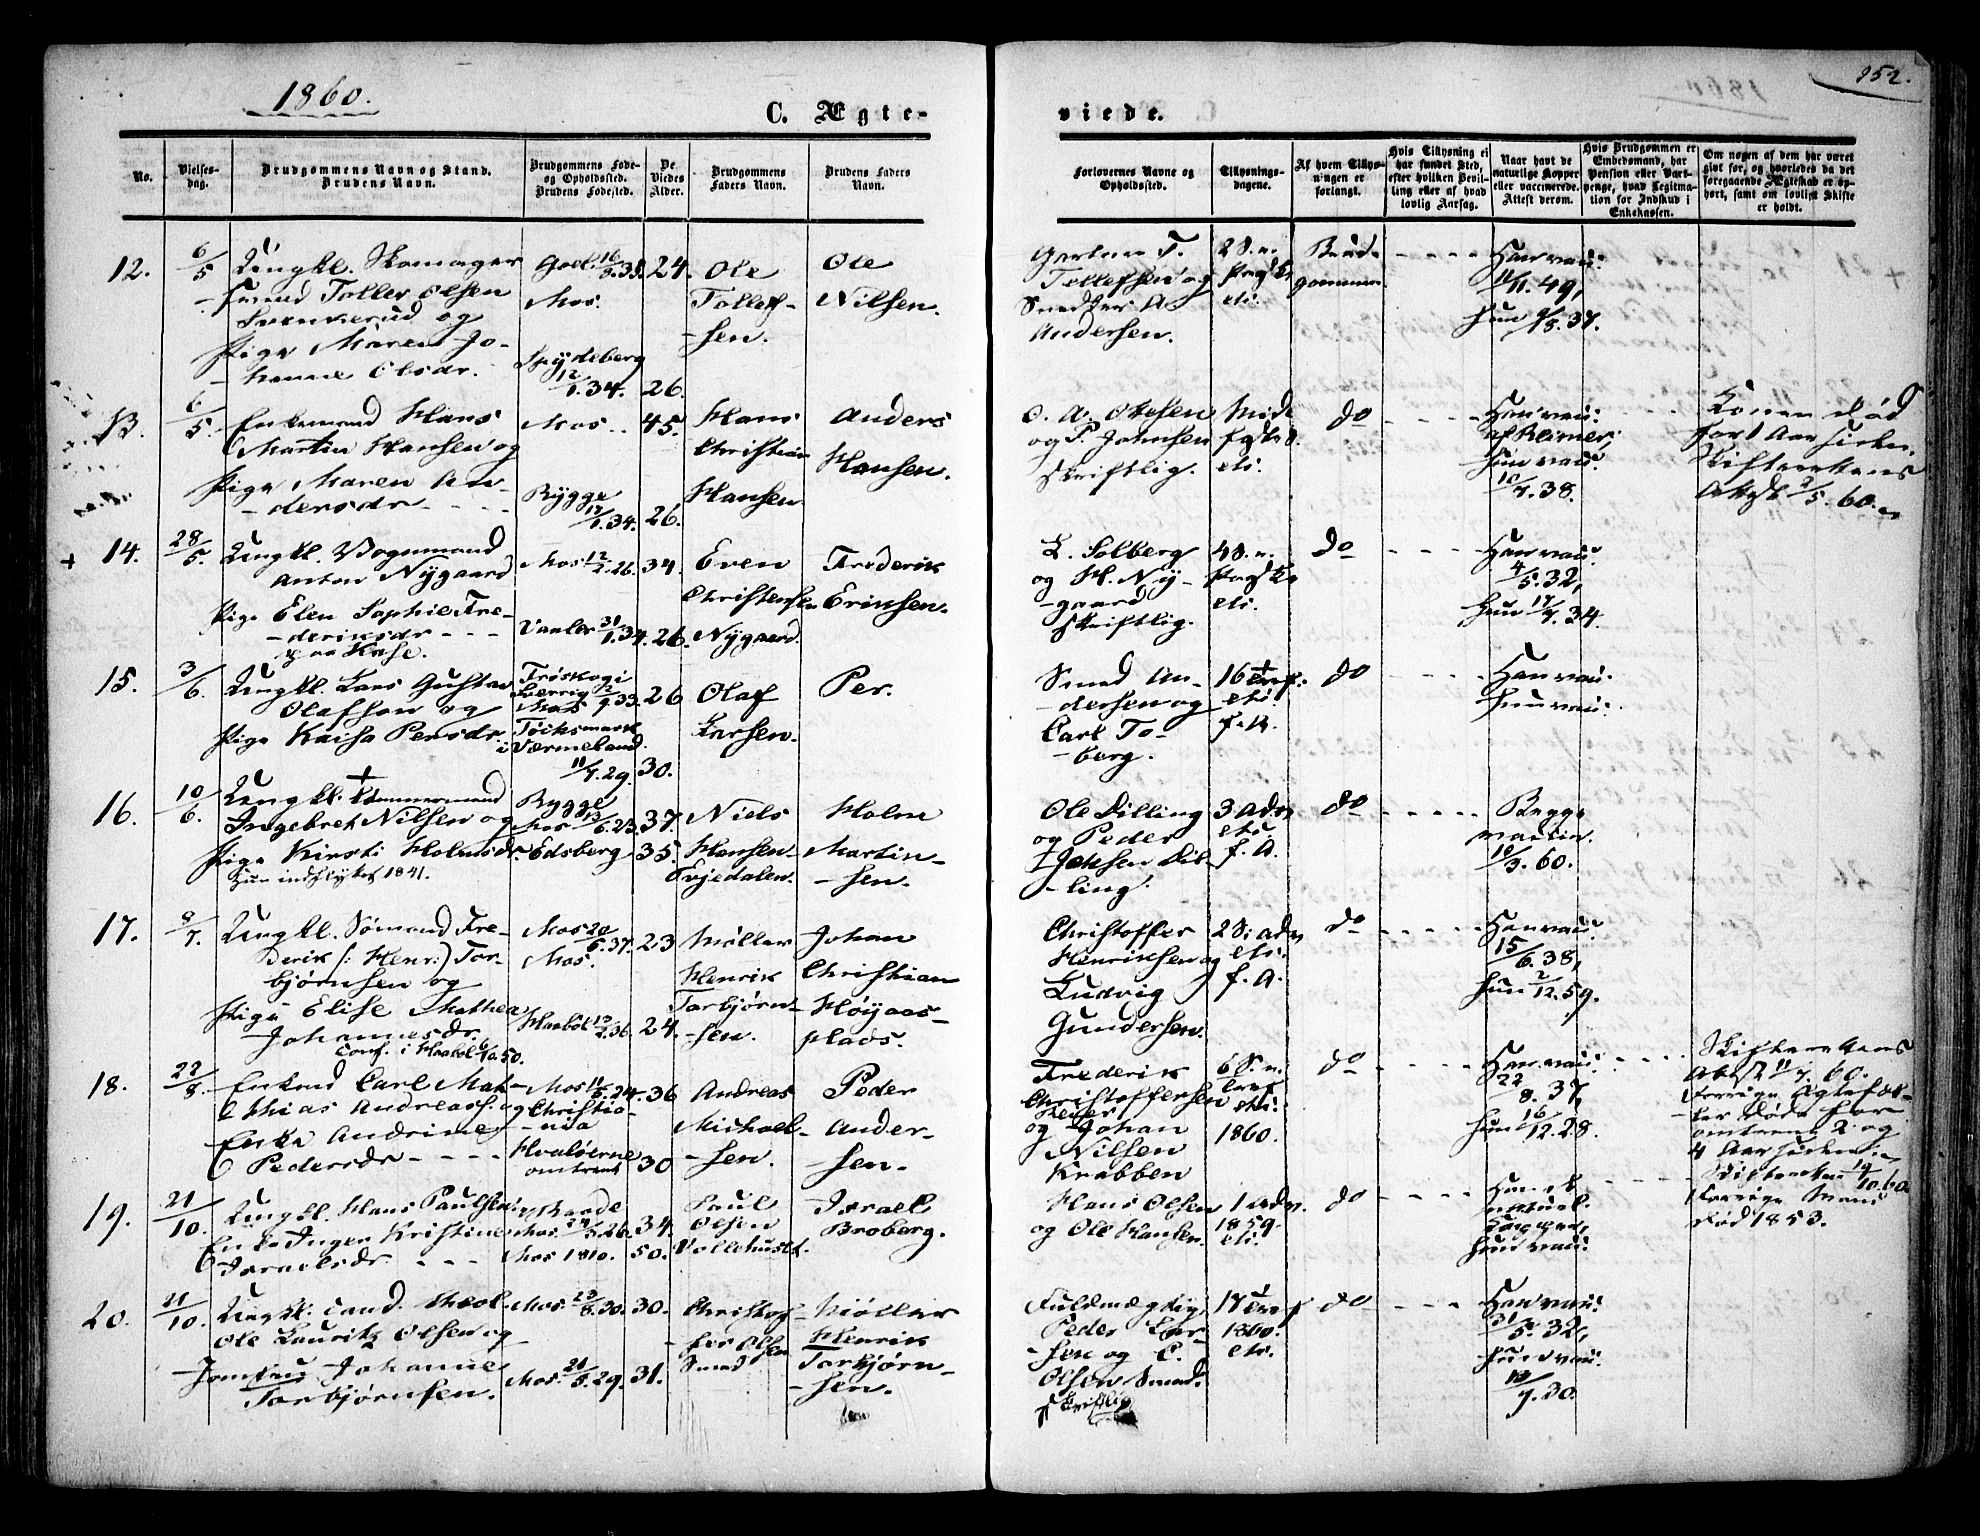 1860.
252.
C. Ægte-
viede.
No.
Vielses-
dag.
Brudgommens Navn og Stand.
Brudens Navn.
Brudgommens Føde-
og Opholdssted.
Brudens Fødested.
De
Viedes
Alder.
Brudgommens
Faders Navn.
Brudens Faders
Navn.
Forlovernes Navne og
Opholdssted.
Tillysnings-
dagene.
Af hvem Tillys-
ningen er
forlangt.
Hvis Tillysning ei
har fundet Sted,
efter hvilken Bevil-
ling eller af hvad
lovlig Aarsag.
Naar havt de
naturlige Kopper
eller vaccinerede.
Attest derom.
Hvis Brudgommen er
Embedsmand, har
Pension eller Vart-
penge, hvad Legitima-
tion for Indskud i
Enkekassen.
Om nogen af dem har været
gift før, og hvorledes da det
foregaaende Ægteskab er op-
hørt, samt om lovligt Skifte
er holdt.
12.
6/5
Ungkl. Skomager
svend Tollef Olsen
og
Pige Maren Jo-
hanne Olsdr.
Mos.
Spydeberg
12/1.34.
24.
26.
Ole
Tollef-
sen.
Ole
Nilsen.
Tollefsen og
Andersen.
Brud-
gommen.
Han vac:
11/11.49,
Hun 9/5.37.
13.
6/5.
Enkemand Hans
Martin Hansen og
Pige Maren An-
dersdr
Mos
Rygge
17/1.34.
45.
26.
Hans
Christian
Hansen.
Anders
Hansen.
og P. Johnsen
skriftlig.
do
Han vac:
Hun vac:
10/7.38.
Konen død
for 1 Aar siden.
Skifterettens
Attest 2/5.60.
14.
28/5.
Ungkl. Vognmand
Anton Nygaard
Pige Elen Sophie Fre-
deriksdr
Mos 12/2.26.
31/1.34.
34.
26.
Even
Christensen
Nygaard
Frederik
Eriksen.
L. Solberg
og H. Ny-
gaard
skriftlig.
do
Han vac:
4/5.32,
Hun 17/7.34.
15.
3/6.
Ungkl. Lars Gustav
Olafson og
Pige Kaisa Persdr.
Töcksmark
i Värmeland.
11/7.29.
26
30.
Olaf
Larsen.
Per.
Smed An-
dersen og
Carl To-
berg.
do
Han vac:
Hun vac:
16.
10/6.
Ungkl. Tømmermand
Ingebret Nilsen og
Pige Kirsti Holmsdr.
Hun indflyttet 1841.
Rygge
Mos 13/6.23.
Edsberg
37.
35.
Niels
Hansen
Evjedalen.
Holm
Martin-
sen.
Ole Dilling
og Peder
Jansen Dil-
ling.
3 adv
f. A.
do
Rygge
vaccin.
10/3.60.
17.
8/7.
Ungkl. Sømand Fre-
derik (: Henr:) Tor-
bjørnsen og
Pige Elise Mathea
Johannesdr.
conf. i Haabøl 6/10.50.
Mos 20/6.37.
Mos.
Haabøl 12/2.36.
23
24.
Møller
Henrik
Torbjørn-
sen.
Johan
Christian
Høiaas-
plads.
Christoffer
Henriksen og
Ludvig
Gundersen.
f. A.
do
Han vac:
15/6.38,
Hun 2/12.59.
18.
22/8.
Enkmd Carl Mat-
thias Andreass. og
Enke Andrine
Pedersdr
Mos 11/6.24.
Christia-
nia
Hvaløerne
omtrent
36
30
Andreas
Michael-
sen.
Peder
Ander-
sen.
Frederik
Christoffersen
og Johan
Nilsen
Krabben
1860.
do
Han vac:
22/8.37,
Hun 16/12.28.
Skifterettens
Attest 11/7.60.
Forrige Ægtefæl-
ler døde for
omtrent 2 og
4 Aar siden.
19.
21/10.
Ungkl. Hans Paulsen
Enke Inger Kristine
Israelsdr.
Raade
Mos 24/3.26.
Mos 1810.
34.
50.
Paul
Olsen
Israel
Broberg.
Hans Olsen
og Ole Hansen.
1 adv.
1859.
do
Han h.
naturl.
Kopper,
Hun vac:
14/10.60.
Forrige Mand
død 1853.
20.
21/10.
Ungkl. Cand. theol.
Ole Lauritz Olsen og
Jomfru Johanne
Torbjørnsen.
Mos. 23/8.30.
Mos. 21/5.29.
30.
31.
Christof-
fer Olsen
Smed
Møller
Henrik
Torbjørn-
sen.
Fuldmægtig
Peder Lar-
sen og C.
Olsen Smed.
skriftlig
1860.
do
Han vac:
31/5.32,
Hun vac: